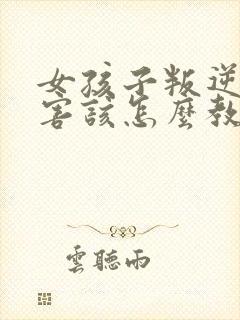 女孩子叛逆
害該怎麼教
雲聽雨